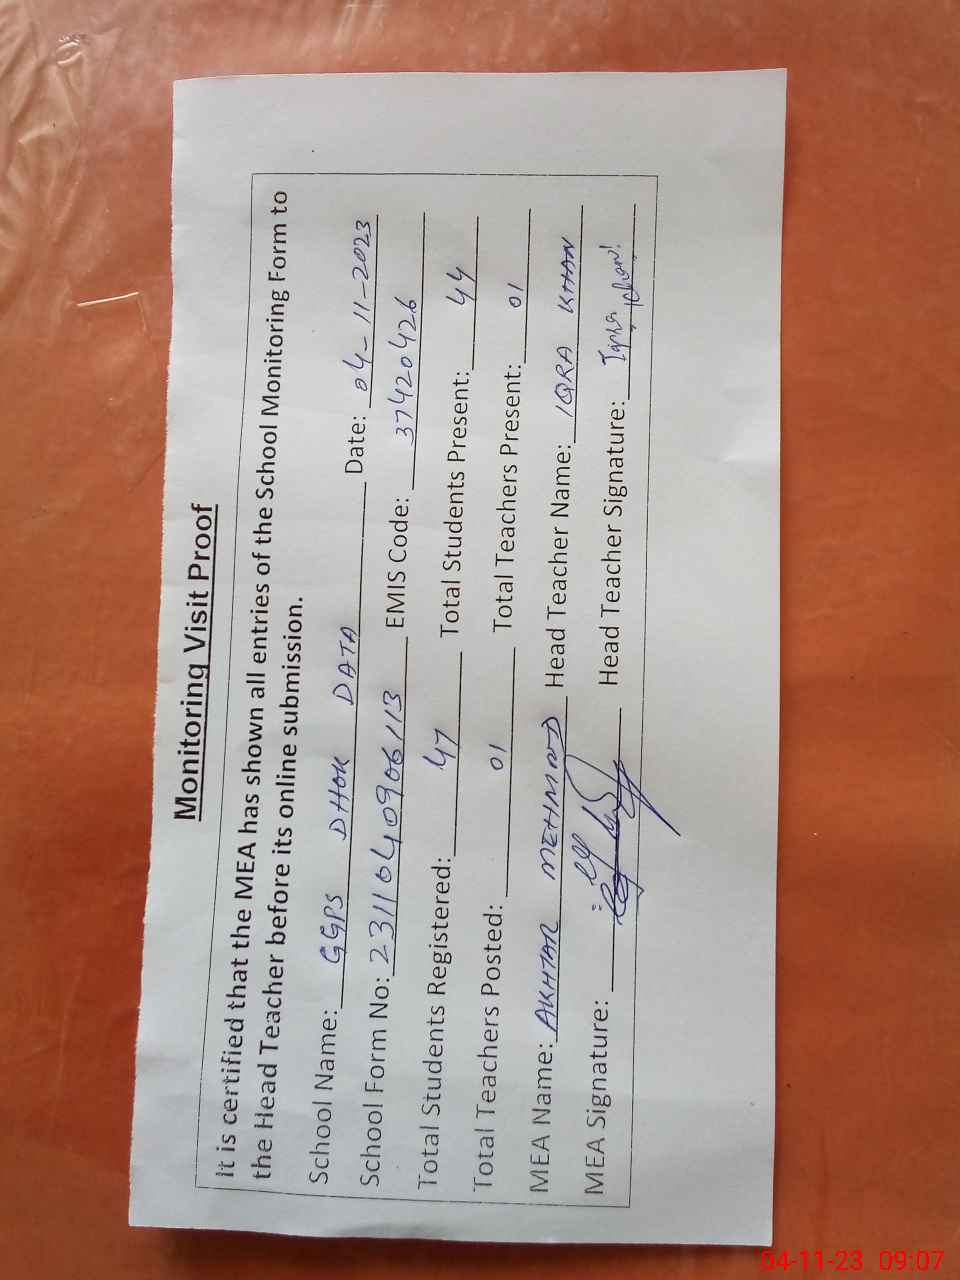 Monitoring Visit Proof
It is certified that the MEA has shown all entries of the School Monitoring Form to
the Head Teacher before its online submission.
School Name: GGPS DHOK DATA Date: 04-11-2023
School Form No: 2311040906113 EMIS Code: 37420426
Total Students Registered: 47 Total Students Present: 44
Total Teachers Posted: 01 Total Teachers Present: 01
MEA Name: AKHTAR MEHMOOD Head Teacher Name: IQRA KHAN
MEA Signature: Head Teacher Signature: Iqra khan!
04-11-23 09:07